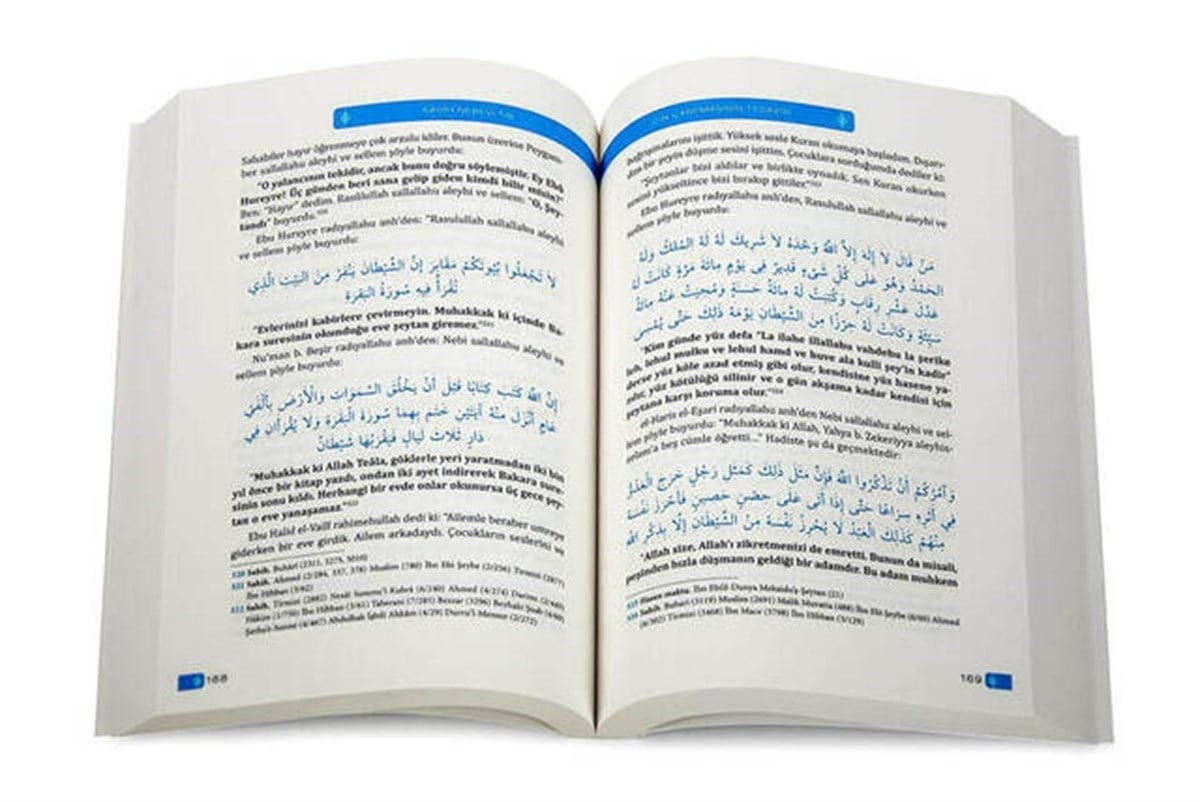 Sahabiler hayır öğrenmeye çok arzulu idiler. Bunun üzerine Peygam-
ber sallallahu aleyhi ve sellem şöyle buyurdu:
"O yalancının tekidir, ancak bunu doğru söylemiştir. Ey Ebu
Hureyre! Üç günden beri sana gelip giden kimdi bilir misin?"
Ben: "Hayır" dedim. Rasulullah sallallahu aleyhi ve sellem: "O, Şey-
tandı" buyurdu.
Ebu Hureyre radıyallahu anh'den: "Rasulullah sallallahu aleyhi
ve sellem şöyle buyurdu:
لَا تَجْعَلُوا بُيُوتَكُمْ مَقَابِرَ إِنَّ الشَّيْطَانَ يَنْفِرُ مِنَ الْبَيْتِ الَّذِي
تُقْرَأُ فِيهِ سُورَةُ الْبَقَرَةِ
"Evlerinizi kabirlere çevirmeyin. Muhakkak ki içinde Ba-
kara suresinin okunduğu eve şeytan giremez."
Nu'man b. Beşir radıyallahu anh'den: Nebi sallallahu aleyhi ve
sellem şöyle buyurdu:
إِنَّ اللَّهَ كَتَبَ كِتَابًا قَبْلَ أَنْ يَخْلُقَ السَّمَوَاتِ وَالْأَرْضَ بِأَلْفَيْ
عَامٍ أَنْزَلَ مِنْهُ آيَتَيْنِ خَتَمَ بِهِمَا سُورَةَ الْبَقَرَةِ وَلَا يُقْرَأَانِ فِي
دَارٍ ثَلَاثَ لَيَالٍ فَيَقْرَبُهَا شَيْطَانٌ
"Muhakkak ki Allah Teâla, göklerle yeri yaratmadan iki bin
yıl önce bir kitap yazdı, ondan iki ayet indirerek Bakara sure-
sinin sonu kıldı. Herhangi bir evde onlar okunursa üç gece şey-
tan o eve yanaşamaz."
Ebu Halid el-Vaili rahimehullah dedi ki: "Ailemle beraber umreye
giderken bir eve girdik. Ailem arkadaydı. Çocukların seslerini ve
120 Sahih. Buhârî (2311, 3275, 5010)
121 Sahih. Ahmed (2/284, 337, 378) Muslim (780) İbn Ebi Şeybe (2/256) Tirmizi (2877)
İbn Hibban (3/62)
122 Sahih. Tirmizi (2882) Nesâî Sunenu'l-Kubrâ (6/240) Ahmed (4/274) Darimi (2/542)
Hakim (1/750) İbn Hibban (3/61) Taberani (7/285) Bezzar (3296) Beyhaki Şuab (4/60)
Şerhu's-Sunne (4/467) Abdulhak İşbili Ahkâm (4/29) Durru'l-Mensur (2/272)
168
bağrışmalarını işittik. Yüksek sesle Kuran okumaya başladım. Dışarı-
dan bir şeyin düşme sesini işittim. Çocuklara sorduğumda dediler ki:
"Şeytanlar bizi aldılar ve birlikte oynadık. Sen Kuran okurken
sesini yükseltince bizi bırakıp gittiler."
Ebu Hureyre radıyallahu anh'den, Rasulullah sallallahu aleyhi ve
sellem şöyle buyurdu:
مَنْ قَالَ لَا إِلَهَ إِلَّا اللَّهُ وَحْدَهُ لَا شَرِيكَ لَهُ لَهُ الْمُلْكُ وَلَهُ
الْحَمْدُ وَهُوَ عَلَى كُلِّ شَيْءٍ قَدِيرٌ فِي يَوْمٍ مِائَةَ مَرَّةٍ كَانَتْ لَهُ
عَدْلَ عَشْرِ رِقَابٍ وَكُتِبَتْ لَهُ مِائَةُ حَسَنَةٍ وَمُحِيَتْ عَنْهُ مِائَةُ
سَيِّئَةٍ وَكَانَتْ لَهُ حِرْزًا مِنَ الشَّيْطَانِ يَوْمَهُ ذَلِكَ حَتَّى يُمْسِيَ
"Kim günde yüz defa "La ilahe illallahu vahdehu la şerike
leh, lehul mulku ve lehul hamd ve huve ala kulli şey'in kadir"
derse yüz köle azad etmiş gibi olur, kendisine yüz hasene ya-
zılır, yüz kötülüğü silinir ve o gün akşama kadar kendisi için
şeytana karşı koruma olur."
el-Haris el-Eşari radıyallahu anh'den Nebi sallallahu aleyhi ve sel-
lem şöyle buyurdu: "Muhakkak ki Allah, Yahya b. Zekeriyya aleyhis-
selam'a beş cümle öğretti..." Hadiste şu da geçmektedir:
وَآمُرُكُمْ أَنْ تَذْكُرُوا اللَّهَ فَإِنَّ مَثَلَ ذَلِكَ كَمَثَلِ رَجُلٍ خَرَجَ الْعَدُوُّ
فِي أَثَرِهِ سِرَاعًا حَتَّى إِذَا أَتَى عَلَى حِصْنٍ حَصِينٍ فَأَحْرَزَ نَفْسَهُ
مِنْهُمْ كَذَلِكَ الْعَبْدُ لَا يُحْرِزُ نَفْسَهُ مِنَ الشَّيْطَانِ إِلَّا بِذِكْرِ اللَّهِ
"Allah size, Allah'ı zikretmenizi de emretti. Bunun da misali,
peşinden hızla düşmanın geldiği bir adamdır. Bu adam muhkem
123 Hasen maktu. İbn Ebi'd-Dunya Mekaidu'ş-Şeytan (21)
124 Sahih. Buhari (3119) Muslim (2691) Malik Muvatta (488) İbn Ebi Şeybe (6/60) Ahmed
(2/302) Tirmizi (3468) İbn Mace (3798) İbn Hibban (3/129)
169